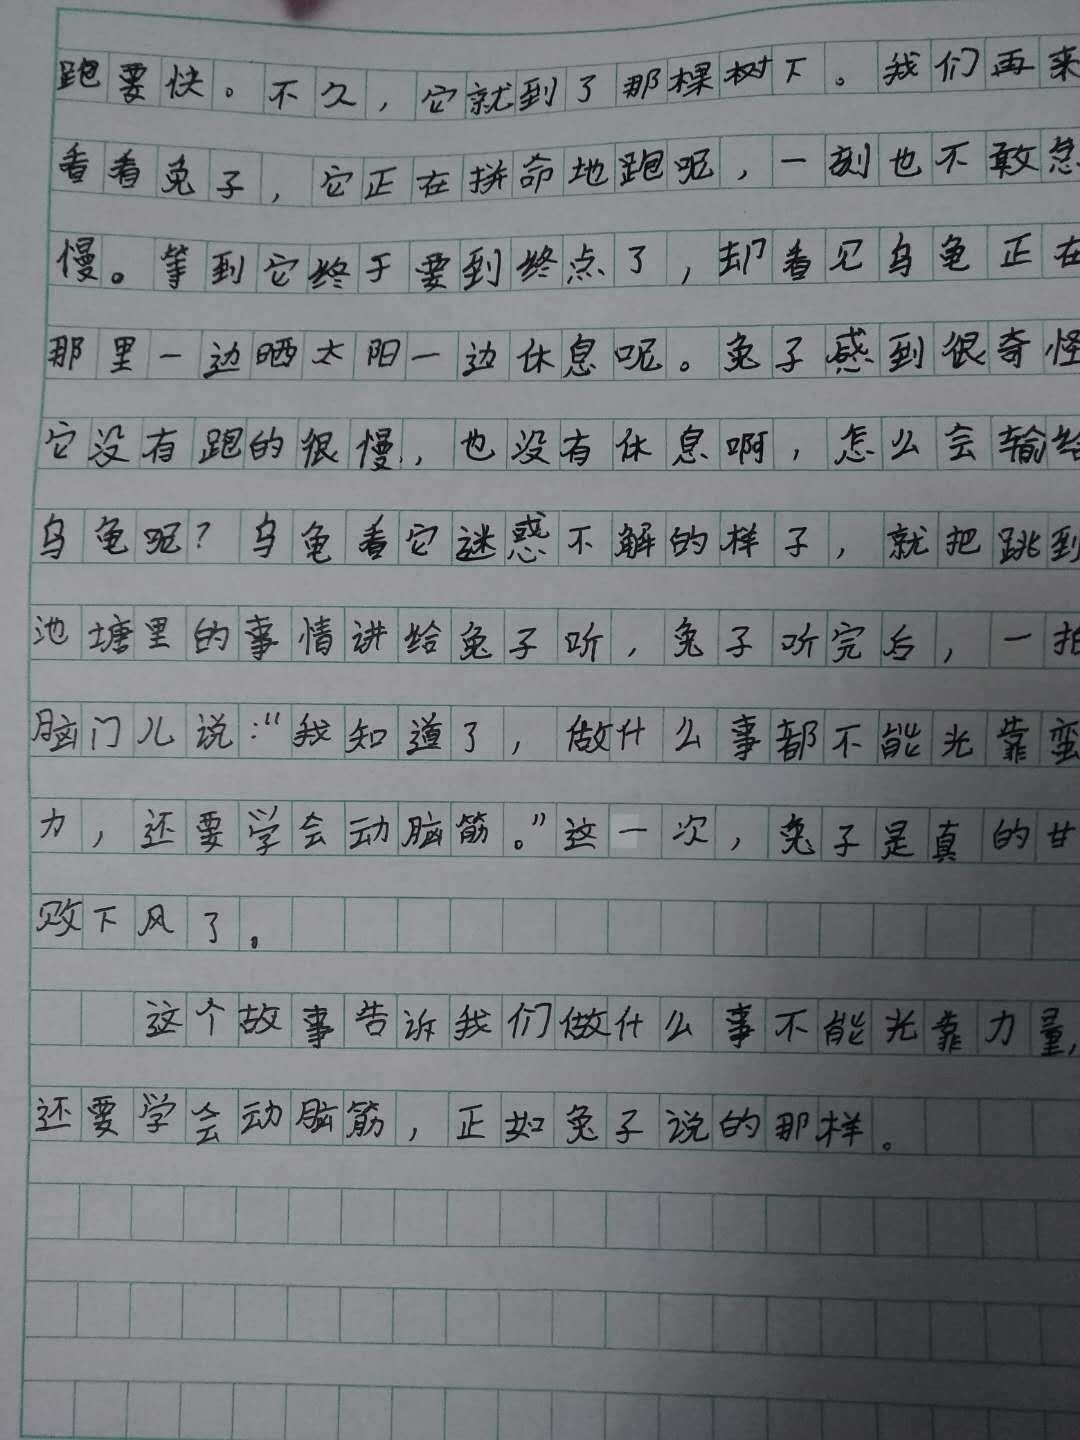 跑要快。不久，它就到了那棵树下。我们再来
看看兔子，它正在拼命地跑呢，一刻也不敢怠
慢。等到它终于要到终点了，却看见乌龟正在
那里一边晒太阳一边休息呢。兔子感到很奇怪
它没有跑的很慢，也没有休息啊，怎么会输给
乌龟呢？乌龟看它谜惑不解的样子，就把跳到
池塘里的事情讲给兔子听，兔子听完后，一拍
脑门儿说：“我知道了，做什么事都不能光靠蛮
力，还要学会动脑筋。”这一次，兔子是真的甘
败下风了。
这个故事告诉我们做什么事不能光靠力量，
还要学会动脑筋，正如兔子说的那样。